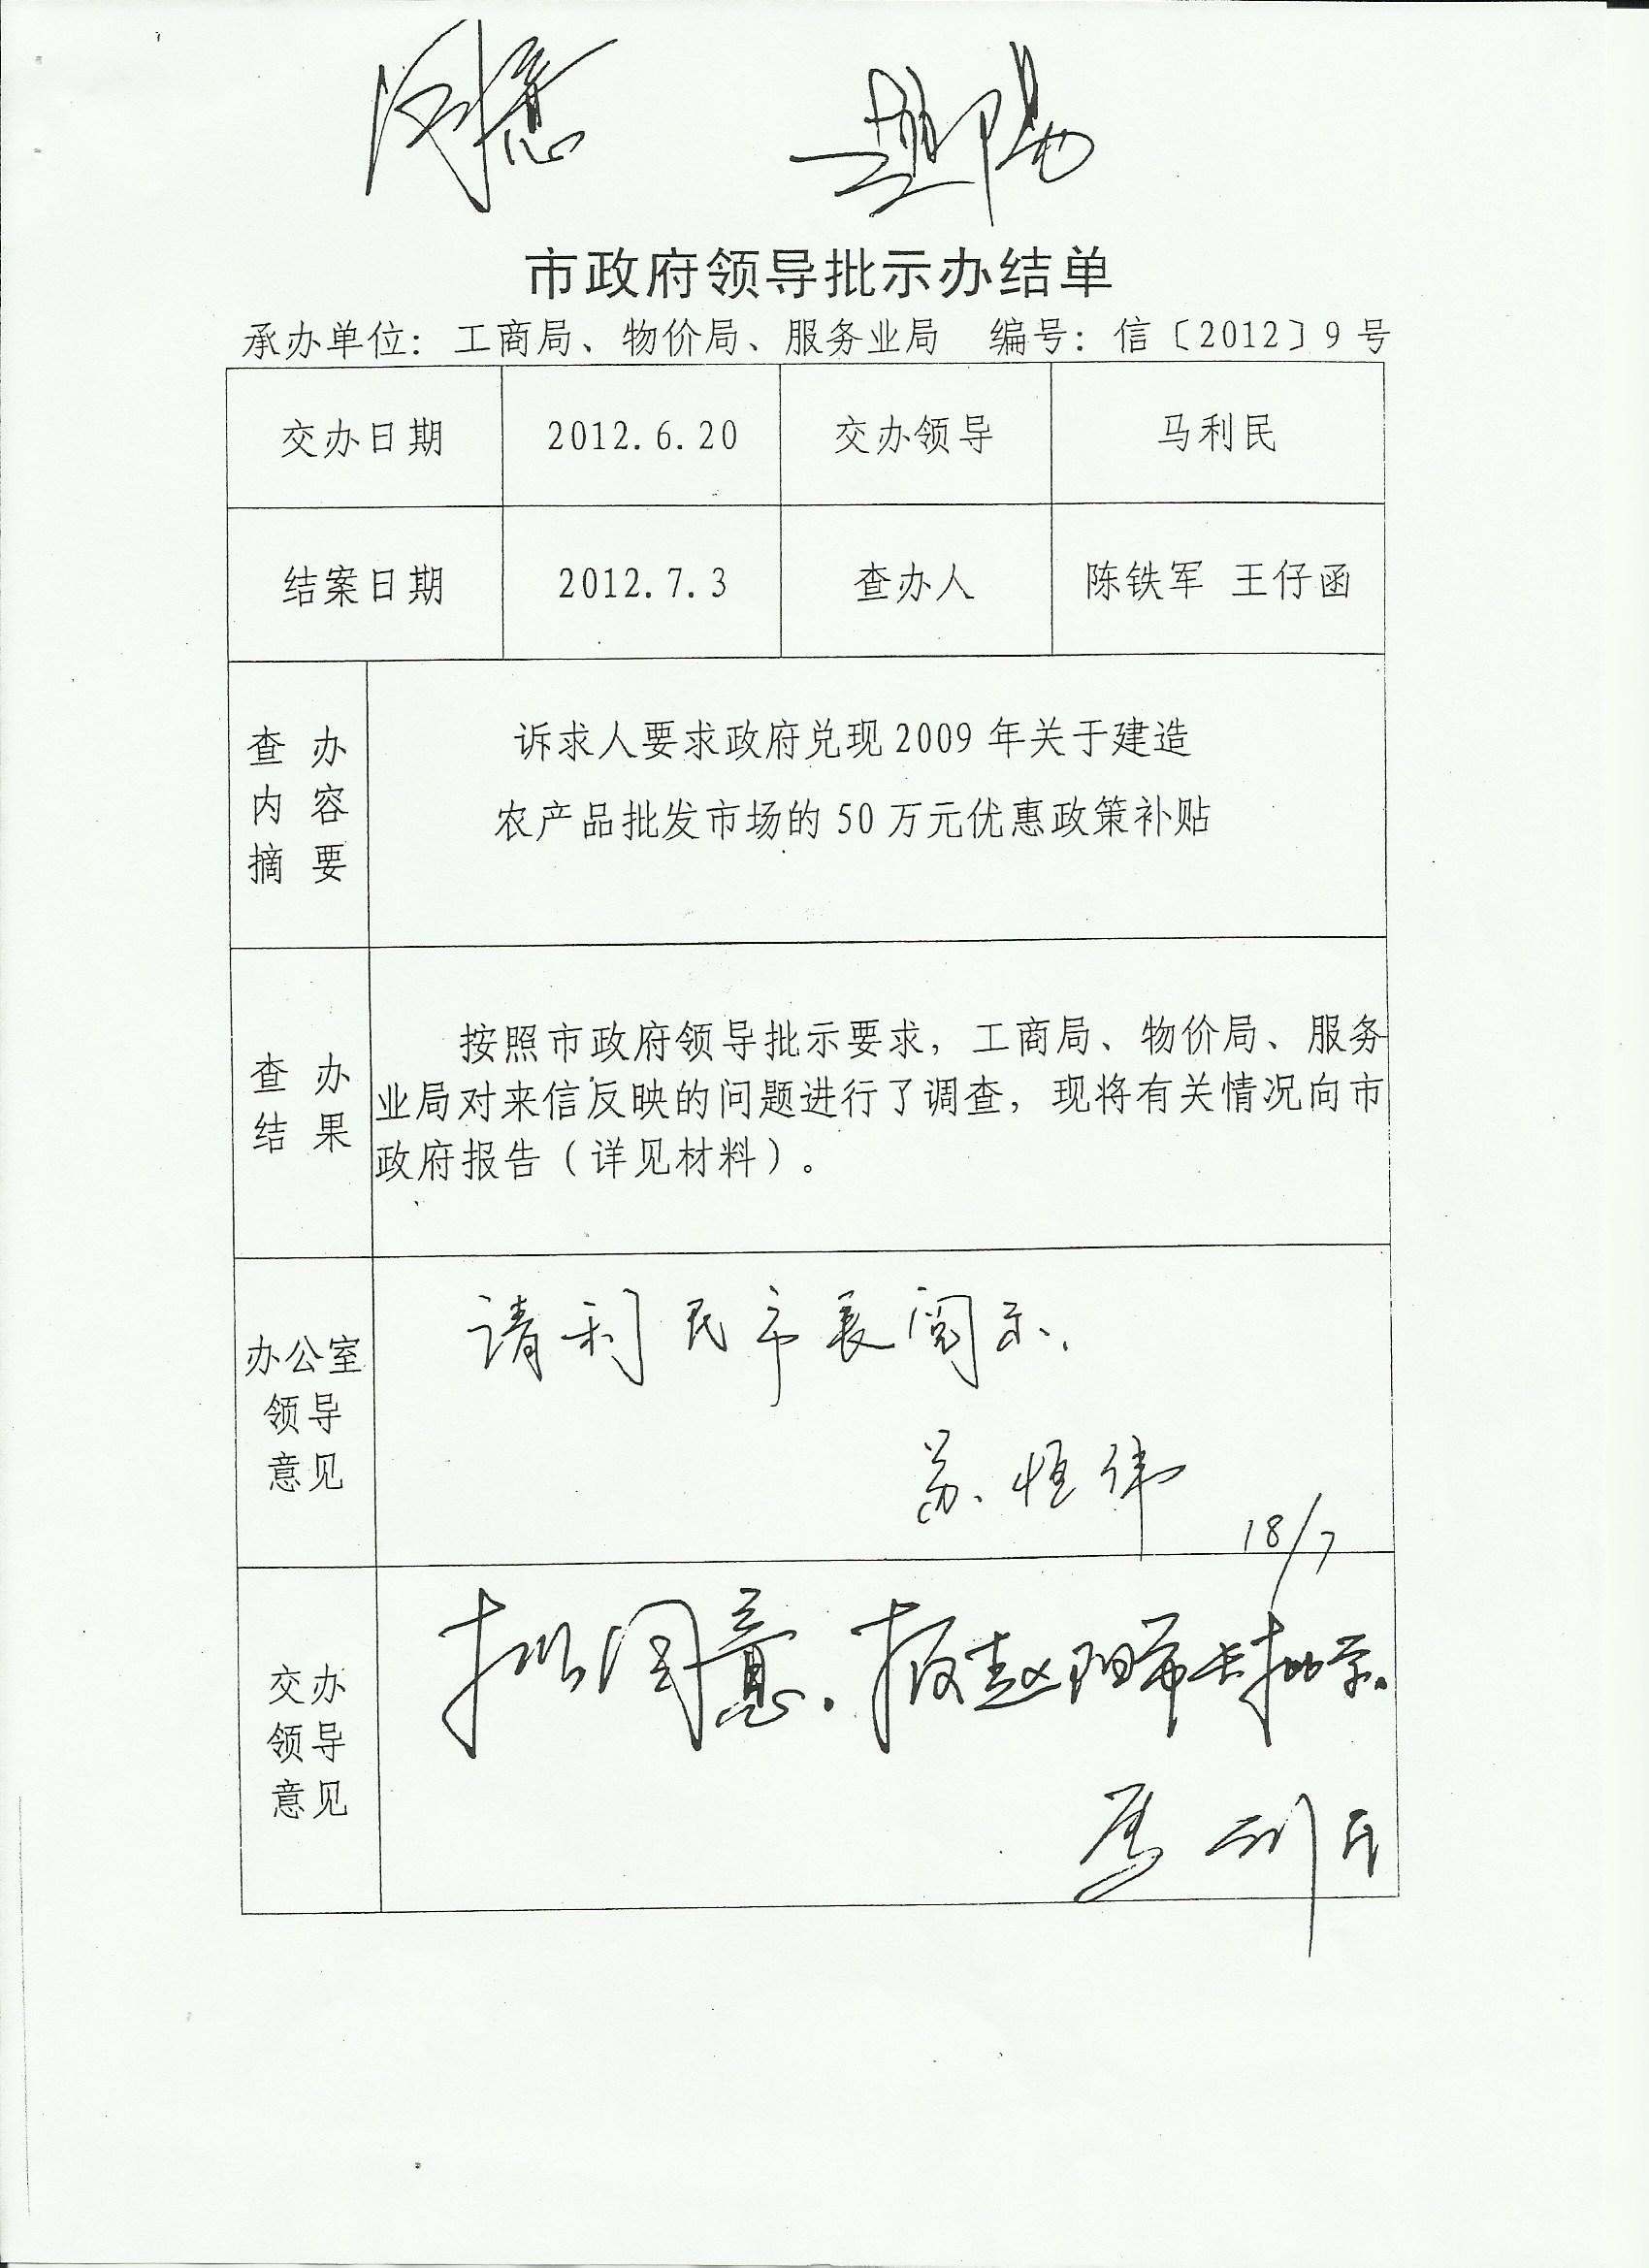 同意 赵阳
市政府领导批示办结单
承办单位：工商局、物价局、服务业局 编号：信〔2012〕9号
交办日期 2012.6.20 交办领导 马利民
结案日期 2012.7.3 查办人 陈铁军 王仔函
查办
内容
摘要
诉求人要求政府兑现2009年关于建造
农产品批发市场的50万元优惠政策补贴
查办
结果
按照市政府领导批示要求，工商局、物价局、服务
业局对来信反映的问题进行了调查，现将有关情况向市
政府报告（详见材料）。
办公室
领导
意见
请利民市长阅示、
苏恒伟
18/7
交办
领导
意见
拟同意．报赵阳市长批示。
马利民